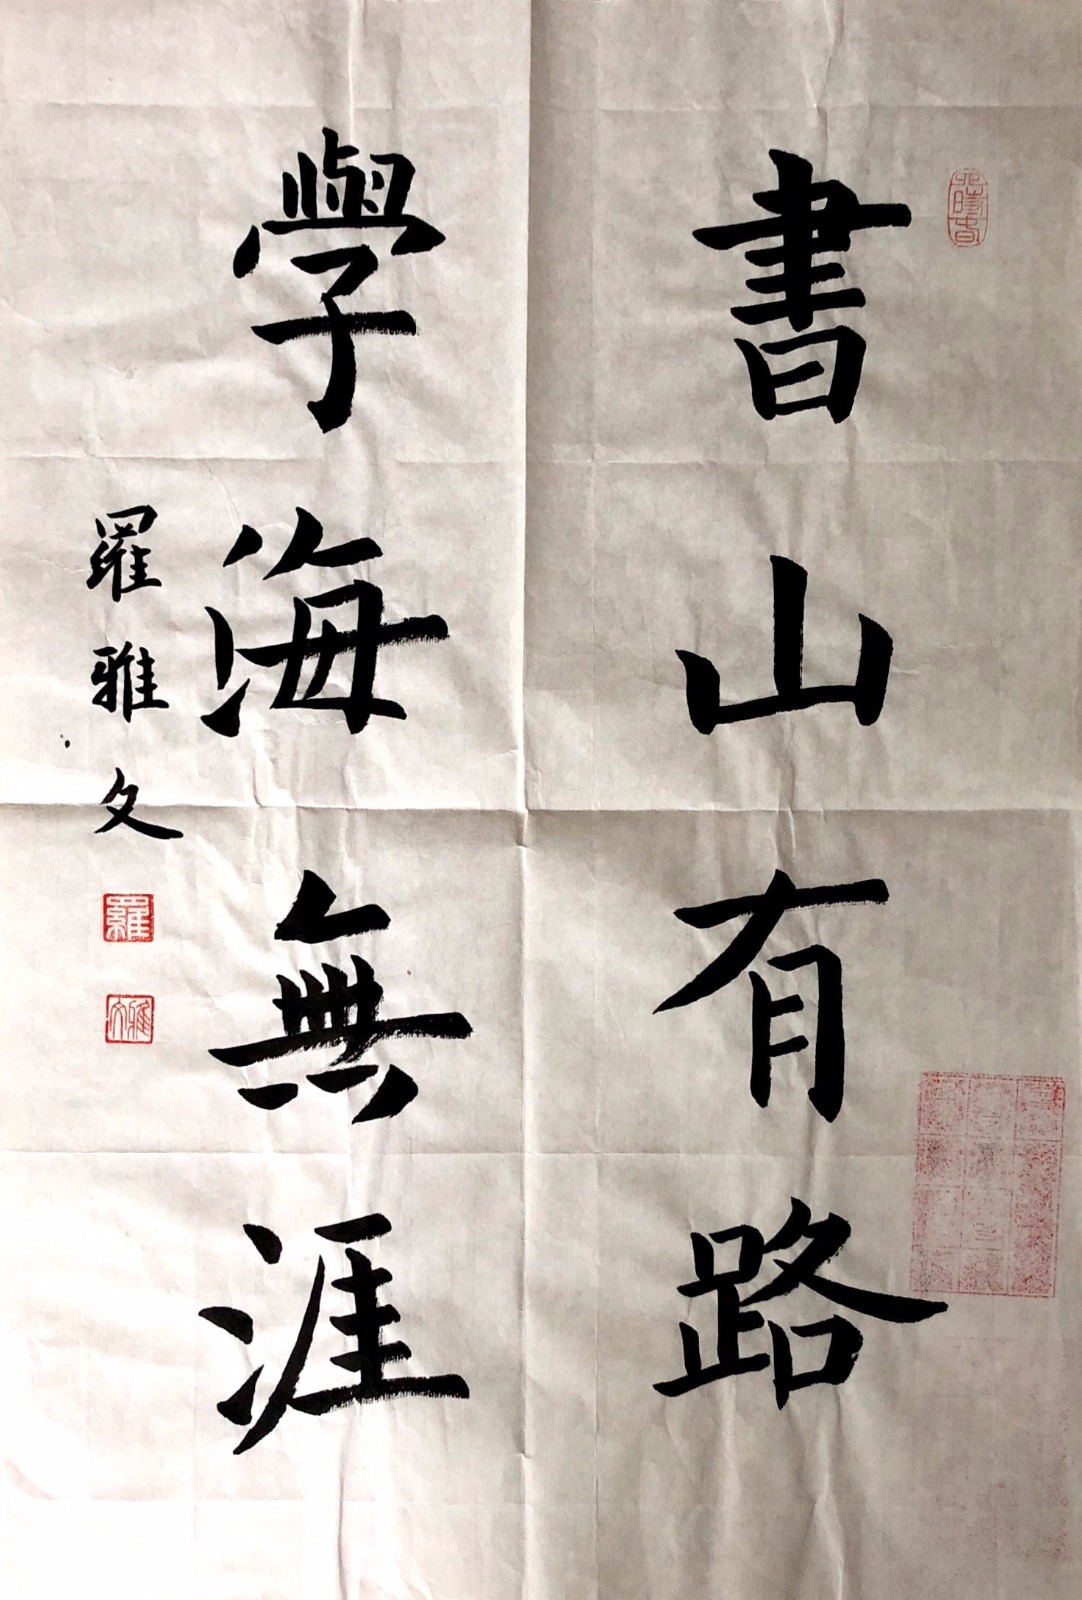 書山有路
學海無涯
羅雅文
羅
雅文